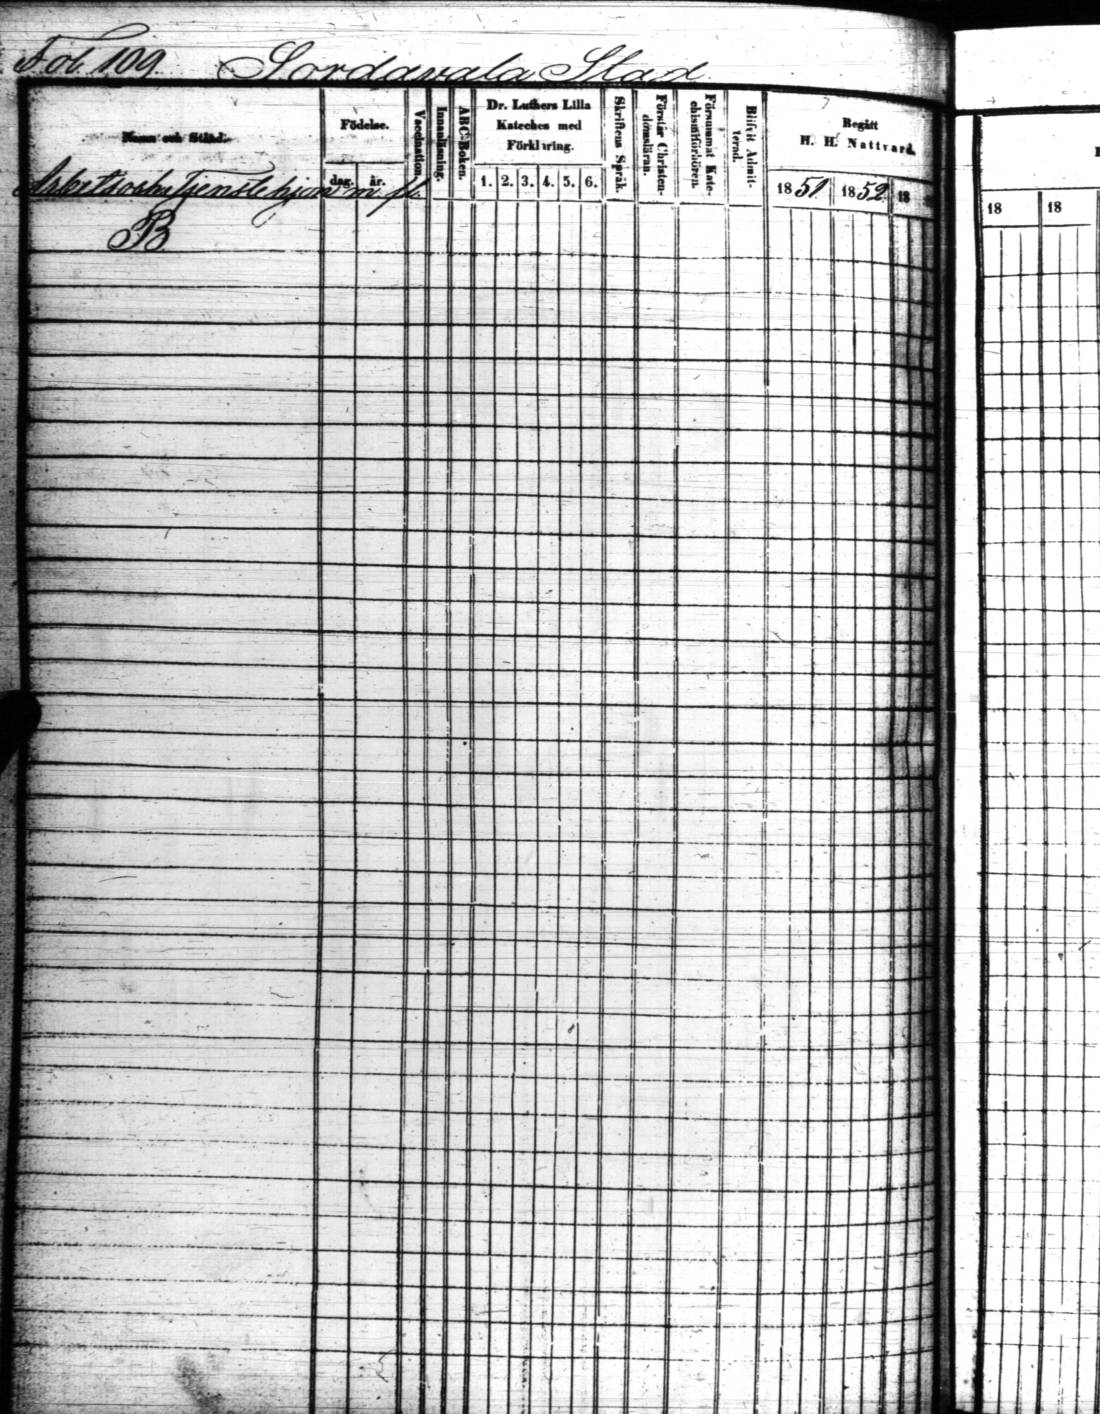 Fol. 109. Sordavala Stad
Namn och Stånd.
Födelse.
dag. år.
Vaccination.
Innanläsning.
ABC-Boken.
Dr. Luthers Lilla
Kateches med
Förklaring.
1. 2. 3. 4. 5. 6.
Skriftens Språk.
Förstår Christen-
domsläran.
Försummat Kate-
chismiförhören.
Blifvit Admit-
terad.
Begått
H. H. Nattvard.
1851 1852 18
18 18
tjenstehjon m. fl.
B